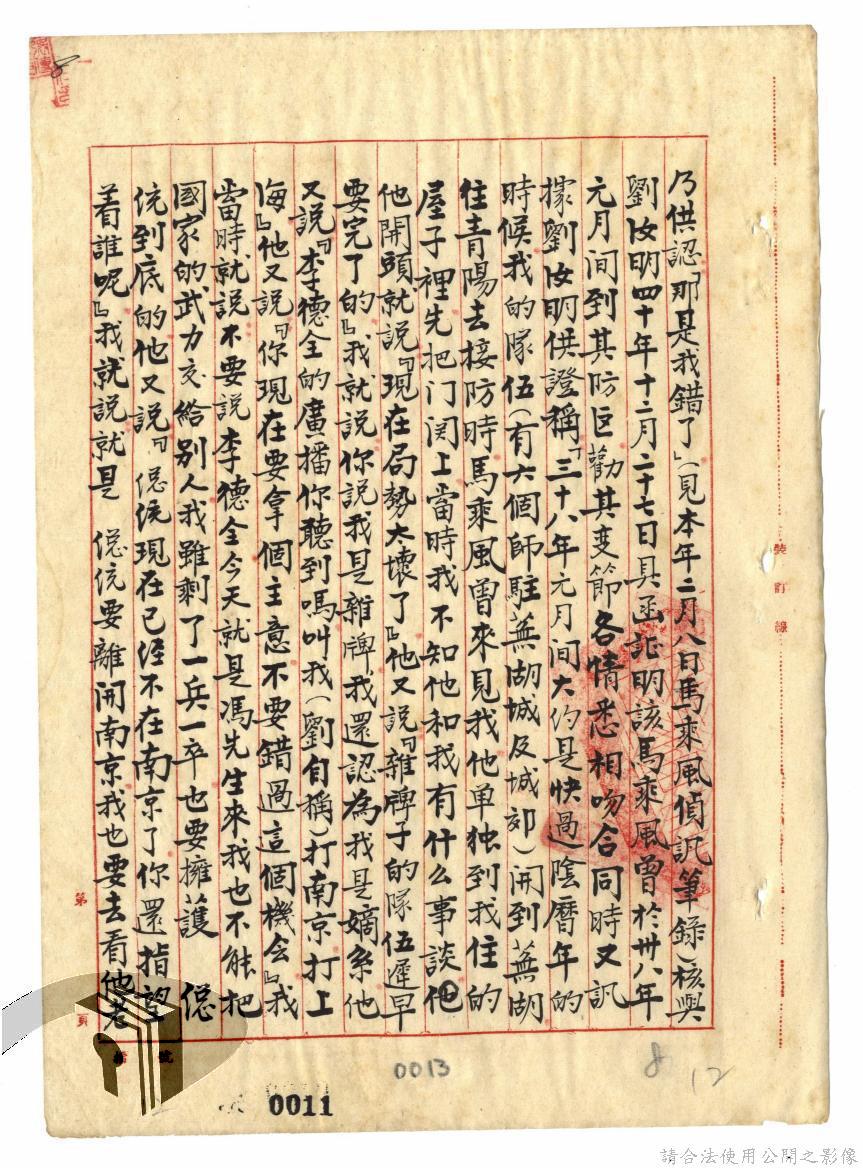 乃供認「那是我錯了」(見本年二月八日馬乘風偵訊筆錄)核與
劉汝明四十年十二月二十七日具函証明該馬乘風曾於卅八年
元月間到其防区勸其变節各情悉相吻合同時又訊
據劉汝明供證稱「三十八年元月間大约是快過陰曆年的
時候我的隊伍(有六個師駐蕪湖城及城郊)開到蕪湖
往青陽去接防時馬乘風曾來見我他单独到我住的
屋子裡先把门関上當時我不知他和我有什么事談他
他開頭就说『現在局勢太壞了』他又说『雜牌子的隊伍遲早
要完了的』我就说你说我是雜牌我還認為我是嫡系他
又说『李德全的廣播你聽到嗎叫我(劉自稱)打南京打上
海』他又说『你現在要拿個主意不要錯過這個機会』我
當時就说不要说李德全今天就是冯先生來我也不能把
國家的武力交給别人我雖剩了一兵一卒也要擁護 偬
统到底的他又说『偬统現在已經不在南京了你還指望
着誰呢』我就说就是 偬统要離開南京我也要去看他老
裝訂線
第
頁
號
0013
8
12
0011
請合法使用公開之影像